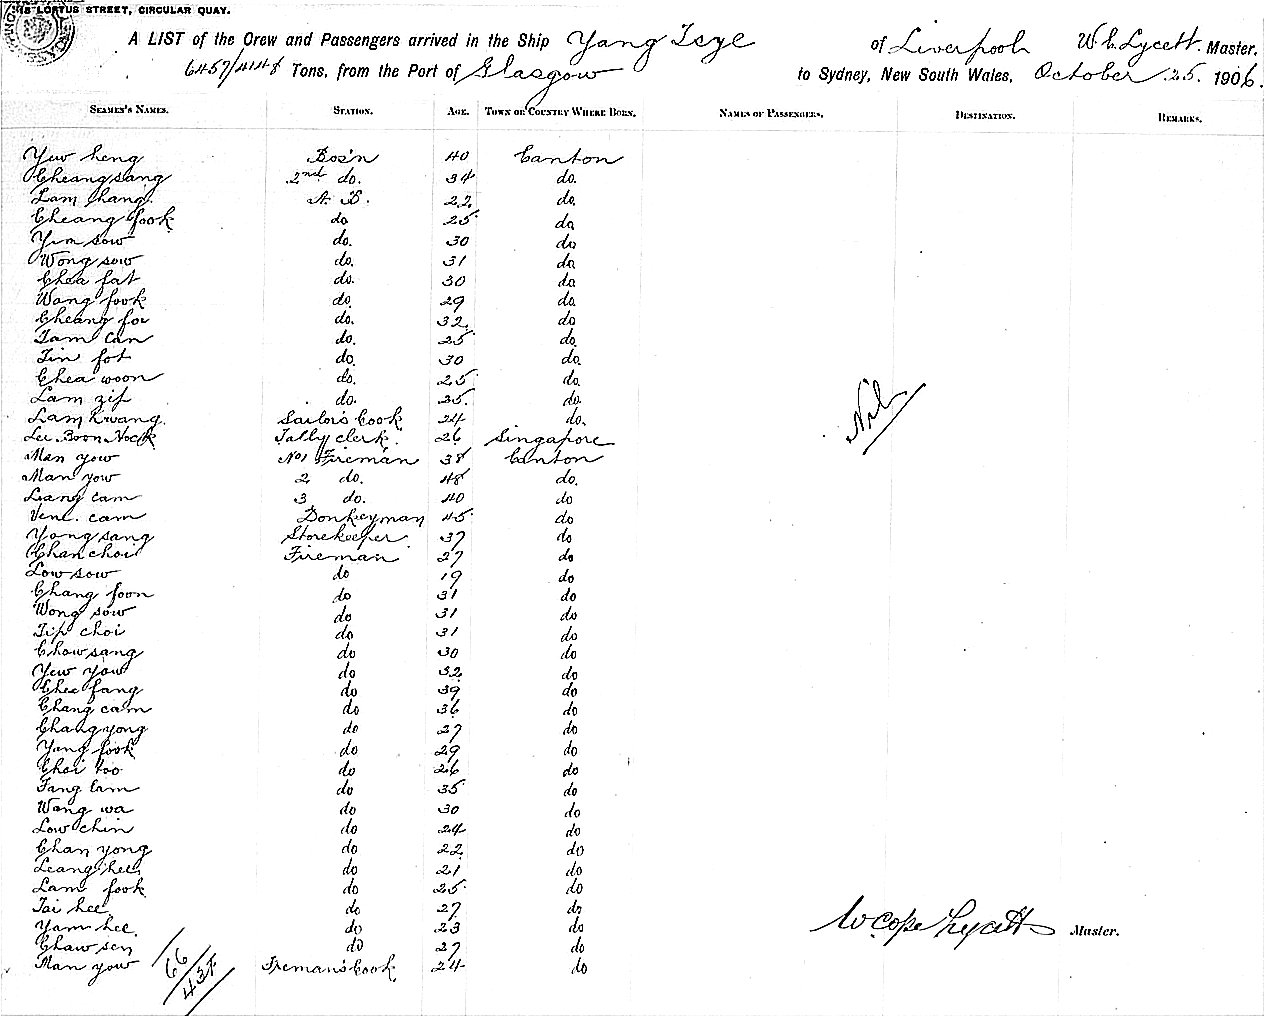 LOFTUS STREET, CIRCULAR QUAY.
A LIST of the Crew and Passengers arrived in the Ship Yang Tsze of Liverpool W. C. Lycett. Master,
6457/4148 Tons, from the Port of Glasgow to Sydney, New South Wales, October 25. 1906.
SEAMEN'S NAMES. STATION. AGE. TOWN OR COUNTRY WHERE BORN. NAMES OF PASSENGERS. DESTINATION. REMARKS.
Yew heng Bos'n 40 Canton
Cheang sang 2nd do. 34 do.
Lam hang. A. B. 22 do.
Cheang fook do 25 do
Yim sow do. 30 do
Wong sow do. 31 do
Chea fat do. 30 do
Wong fook do 29 do
Cheang foi do. 32 do
Tam can do. 25 do.
Tin fot do. 30 do.
Chea woon do. 25 do.
Lam zif do. 25. do.
Lam Kwang. Sailor's Cook 24 do.
Lee Boon Nock Tally clerk. 26 Singapore
Man yow No 1 Fireman 38 Canton
Man yow 2 do. 48 do.
Leang cam 3 do. 40 do
cam Donkeyman 45 do
Yong sang Storekeeper 37 do
Chan choi Fireman 27 do
Low sow do 19 do
Chang foon do 31 do
Wong sow do 31 do
Tip choi do 31 do
Chow sang do 30 do
Yew yow do 32 do
Chee fang do 39 do
Chang cam do 36 do
Chang yong do 27 do
Yang fook do 29 do
Choi too do 26 do
Fang lam do 35 do
Wong wa do 30 do
Low chin do 24 do
Chan yong do 22 do
Leang hee do 21 do
Lam fook do 25 do
Tai hee do 27 do
Yam hee. do 23 do
Chaw sen do 27 do
Man yow Fireman's Cook 24 do
Nil
W Cope Lycett Master.
66